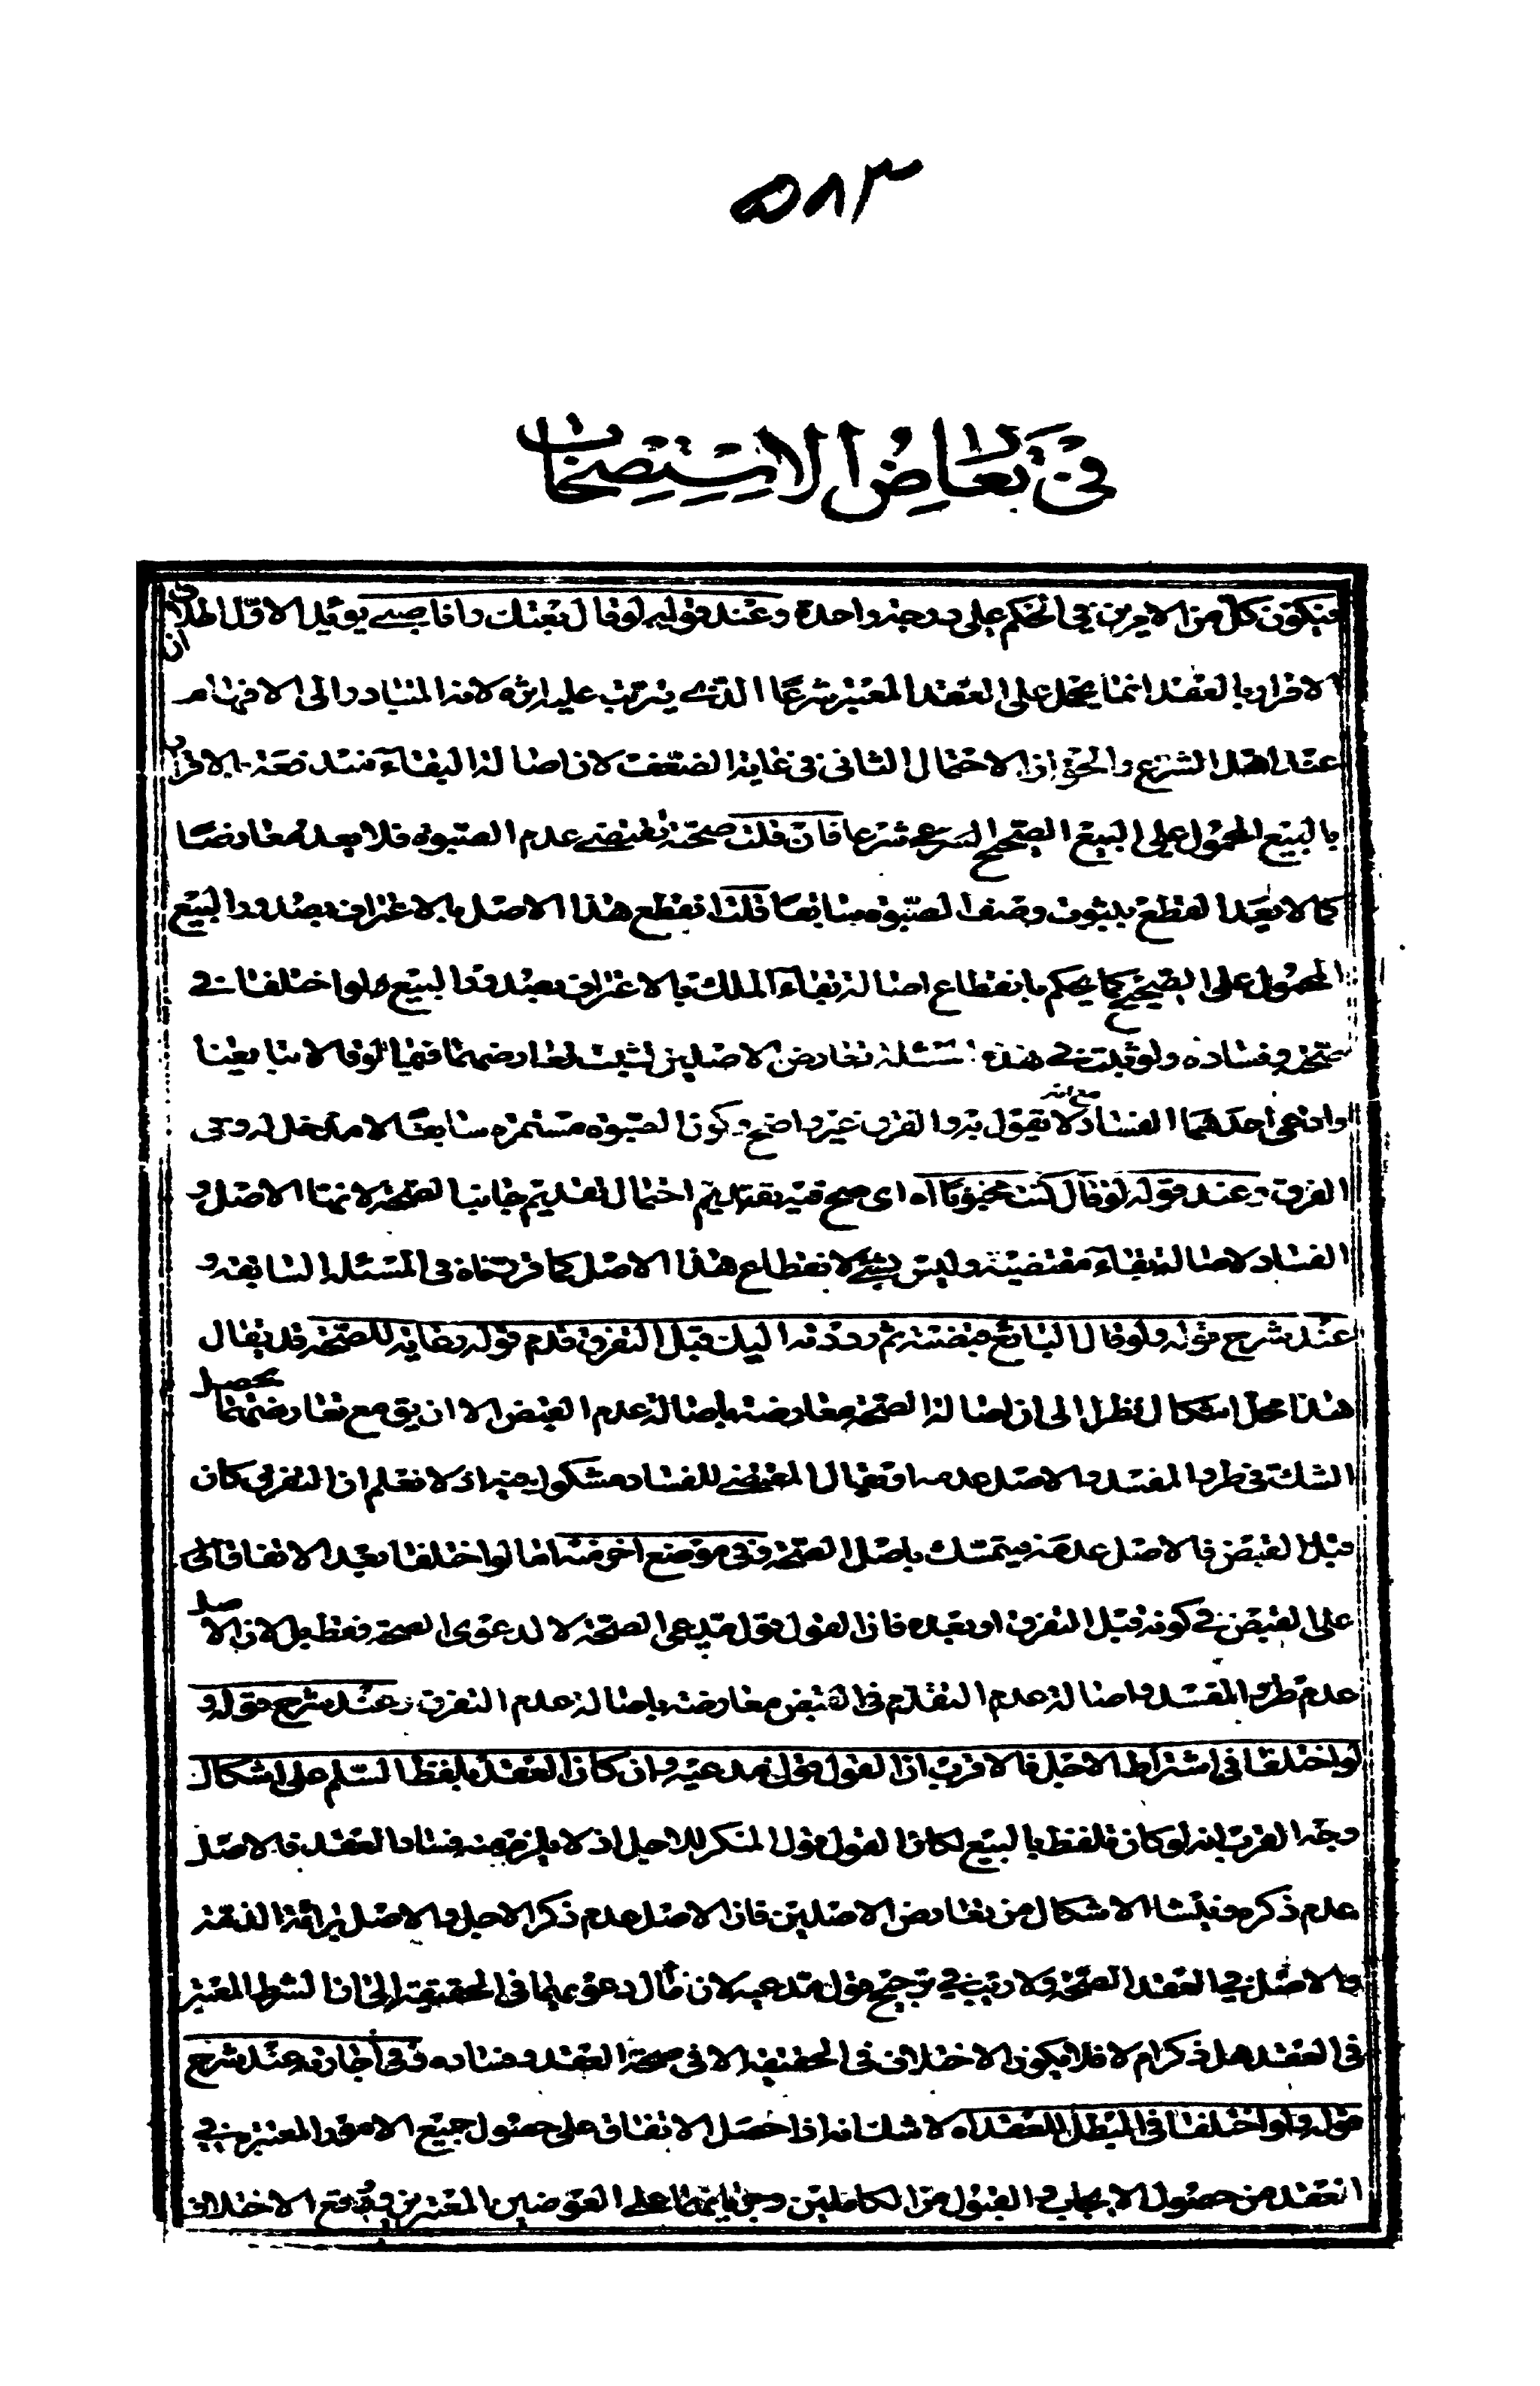 ٥٨٣
في تعارض الاستصحاب
فيكون كل من الامرين في الحكم على درجة واحدة وعند قوله لو قال بعتك وانا صبي يؤيد الاول اطلاق
ان الاقرار بالعقد انما يحمل على العقد المعتبر شرعا الذي يترتب عليه اثره لانه المتبادر الى الافهام
عند اهل الشرع والحق ان الاحتمال الثاني في غاية الضعف لان اصالة البقاء مندفعة بالاقرار
بالبيع المحمول على البيع الصحيح شرعا فان قلت صحته تقتضي عدم الصبوة فلا يعد معارضا
كما لا يعد القطع بثبوت وصف الصبوة سابقا قلنا نقطع هذا الاصل بالاعتراف بصدور البيع
المحمول على الصحيح كما يحكم بانقطاع اصالة بقاء الملك بالاعتراف بصدور البيع ولو اختلفا في
صحته وفساده ولو في هذه المسئلة تعارض الاصلين لثبت تعارضهما فيما لو قالا تبايعنا
وادعى احدهما الفساد مع انه لا يقول به والفرق غير واضح وكون الصبوة مستمرة سابقا لا مدخل له في
الفرق وعند قوله لو قال كنت مجنونا اه اي صح فيه تقديم احتمال تقديم جانب الصحة لانها الاصل و
الفساد لاصالة بقاء مقتضية وليس بشيء لانقطاع هذا الاصل كما قررناه في المسئلة السابقة و
عند شرح قوله ولو قال البايع قبضته ثم رددته اليك قبل التفرق قدم قوله رعاية للصحة قد يقال
هذا محل اشكال نظرا الى ان اصالة الصحة معارضة باصالة عدم القبض الا ان يق مع تعارضهما يحصل
الشك في طرو المفسد والاصل عدمه المقتضي للفساد مشكوك فيه اذ لا نعلم ان التفرق كان
قبل القبض فالاصل عدمه فيتمسك باصل الصحة وفي موضع اخر منه اما لو اختلفا بعد الاتفاق
على القبض في كونه قبل التفرق او بعده فان القول قول مدعي الصحة لا لدعوى الصحة فقط بل لان الاصل
عدم طرو المفسد واصالة عدم التقدم في القبض معارضة باصالة عدم التفرق وعند شرح قوله و
لو اختلفا في اشتراط الاجل فالاقرب ان القول قول مدعيه وان كان العقد بلفظ السلم على اشكال
وجه القرب انه لو كان بلفظ البيع لكان القول قول المنكر للاجل اذ لا يلزم منه فساد العقد فالاصل
عدم ذكره ومنشا الاشكال من تعارض الاصلين فان الاصل عدم ذكر الاجل والاصل براءة الذمة
والاصل في العقد الصحة ولا ريب في ترجيح قول مدعيه لان مال دعويهما في الحقيقة الى ان الشرط المعتبر
في العقد هل ذكر ام لا فلا يكون الاختلاف في الحقيقة الا في صحة العقد وفساده وفي اجارته عند شرح
قوله ولو اختلفا في المبطل للعقد اه لا شك انه اذا حصل الاتفاق على حصول جميع الامور المعتبرة في
العقد من حصول الايجاب والقبول من الكاملين وجريانهما على العوضين المعتبرين ووقع الاختلاف